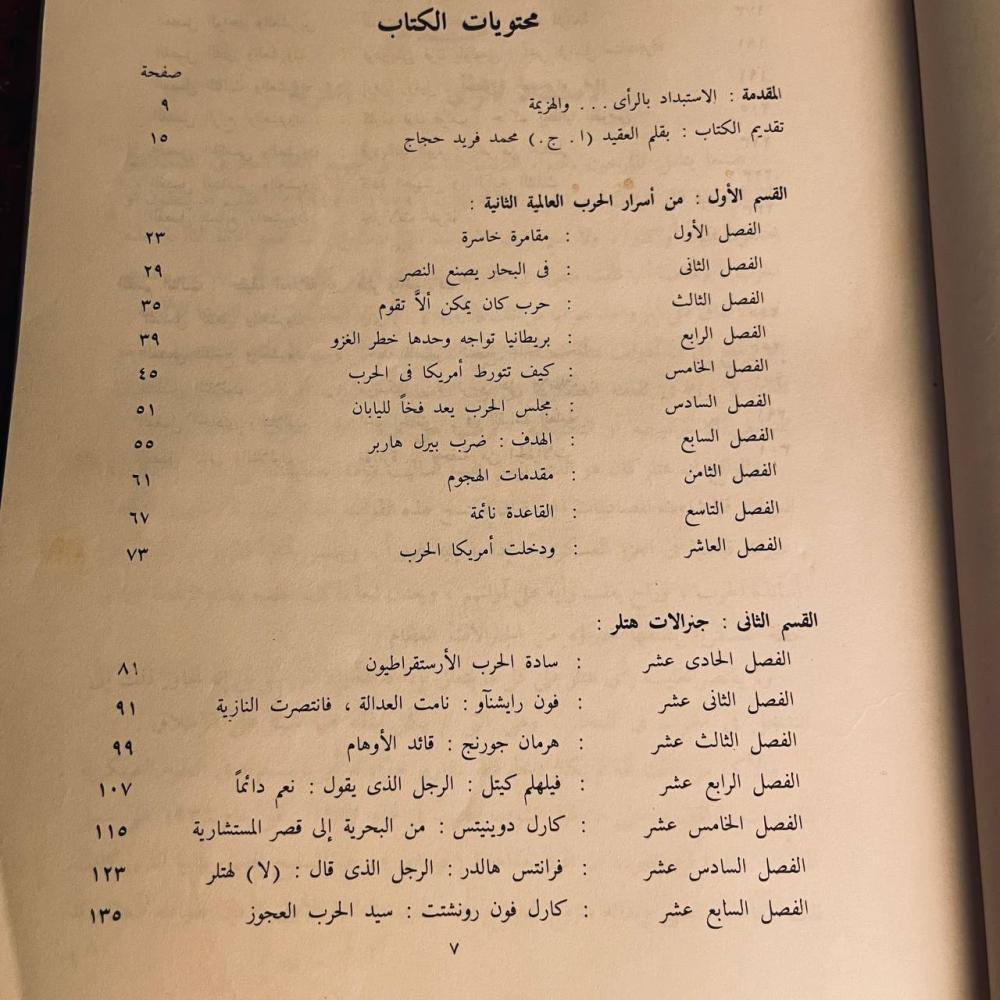 محتويات الكتاب
صفحة
المقدمة : الاستبداد بالرأى . . . والهزيمة ٩
تقديم الكتاب : بقلم العقيد (ا . ج .) محمد فريد حجاج ١٥
القسم الأول : من أسرار الحرب العالمية الثانية :
الفصل الأول : مقامرة خاسرة ٢٣
الفصل الثانى : فى البحار يصنع النصر ٢٩
الفصل الثالث : حرب كان يمكن ألاَّ تقوم ٣٥
الفصل الرابع : بريطانيا تواجه وحدها خطر الغزو ٣٩
الفصل الخامس : كيف تتورط أمريكا فى الحرب ٤٥
الفصل السادس : مجلس الحرب يعد فخاً لليابان ٥١
الفصل السابع : الهدف : ضرب بيرل هاربر ٥٥
الفصل الثامن : مقدمات الهجوم ٦١
الفصل التاسع : القاعدة نائمة ٦٧
الفصل العاشر : ودخلت أمريكا الحرب ٧٣
القسم الثانى : جنرالات هتلر :
الفصل الحادى عشر : سادة الحرب الأرستقراطيون ٨١
الفصل الثانى عشر : فون رايشنآو : نامت العدالة ، فانتصرت النازية ٩١
الفصل الثالث عشر : هرمان جورنج : قائد الأوهام ٩٩
الفصل الرابع عشر : فيلهلم كيتل : الرجل الذى يقول : نعم دائماً ١٠٧
الفصل الخامس عشر : كارل دوينيتس : من البحرية إلى قصر المستشارية ١١٥
الفصل السادس عشر : فرانتس هالدر : الرجل الذى قال : (لا) لهتلر ١٢٣
الفصل السابع عشر : كارل فون رونشتت : سيد الحرب العجوز ١٣٥
٧